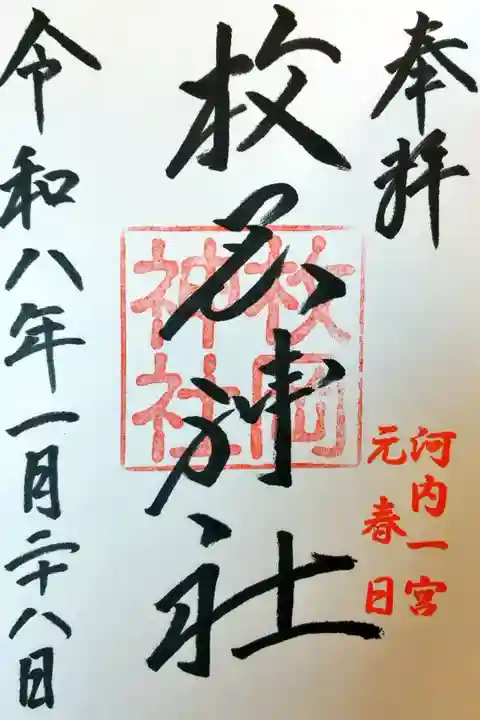 奉拝
河内一宮
元春日
枚岡神社
枚岡
神社
令和八年一月二十八日